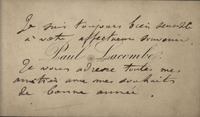 Je suis toujours bien sensible
à votre affectueux souvenir.
Paul Lacombe
Je vous adresse toutes mes
amitiés avec mes souhaits
de bonne année.